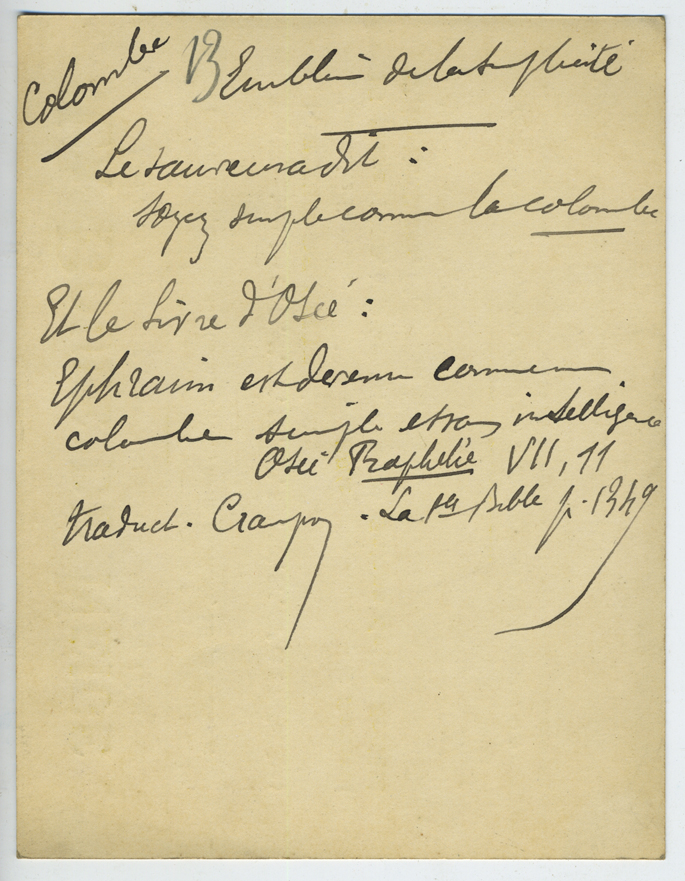 Colombe
13 Emblème de la simplicité
Le sauveur a dit :
Soyez simple comme la colombe
Et le livre d'Osée :
Ephraim est devenu comme une
colombe simple et sans intelligence
Osée Prophétie VII, 11
traduct. Crampon. La Ste Bible p. 1349